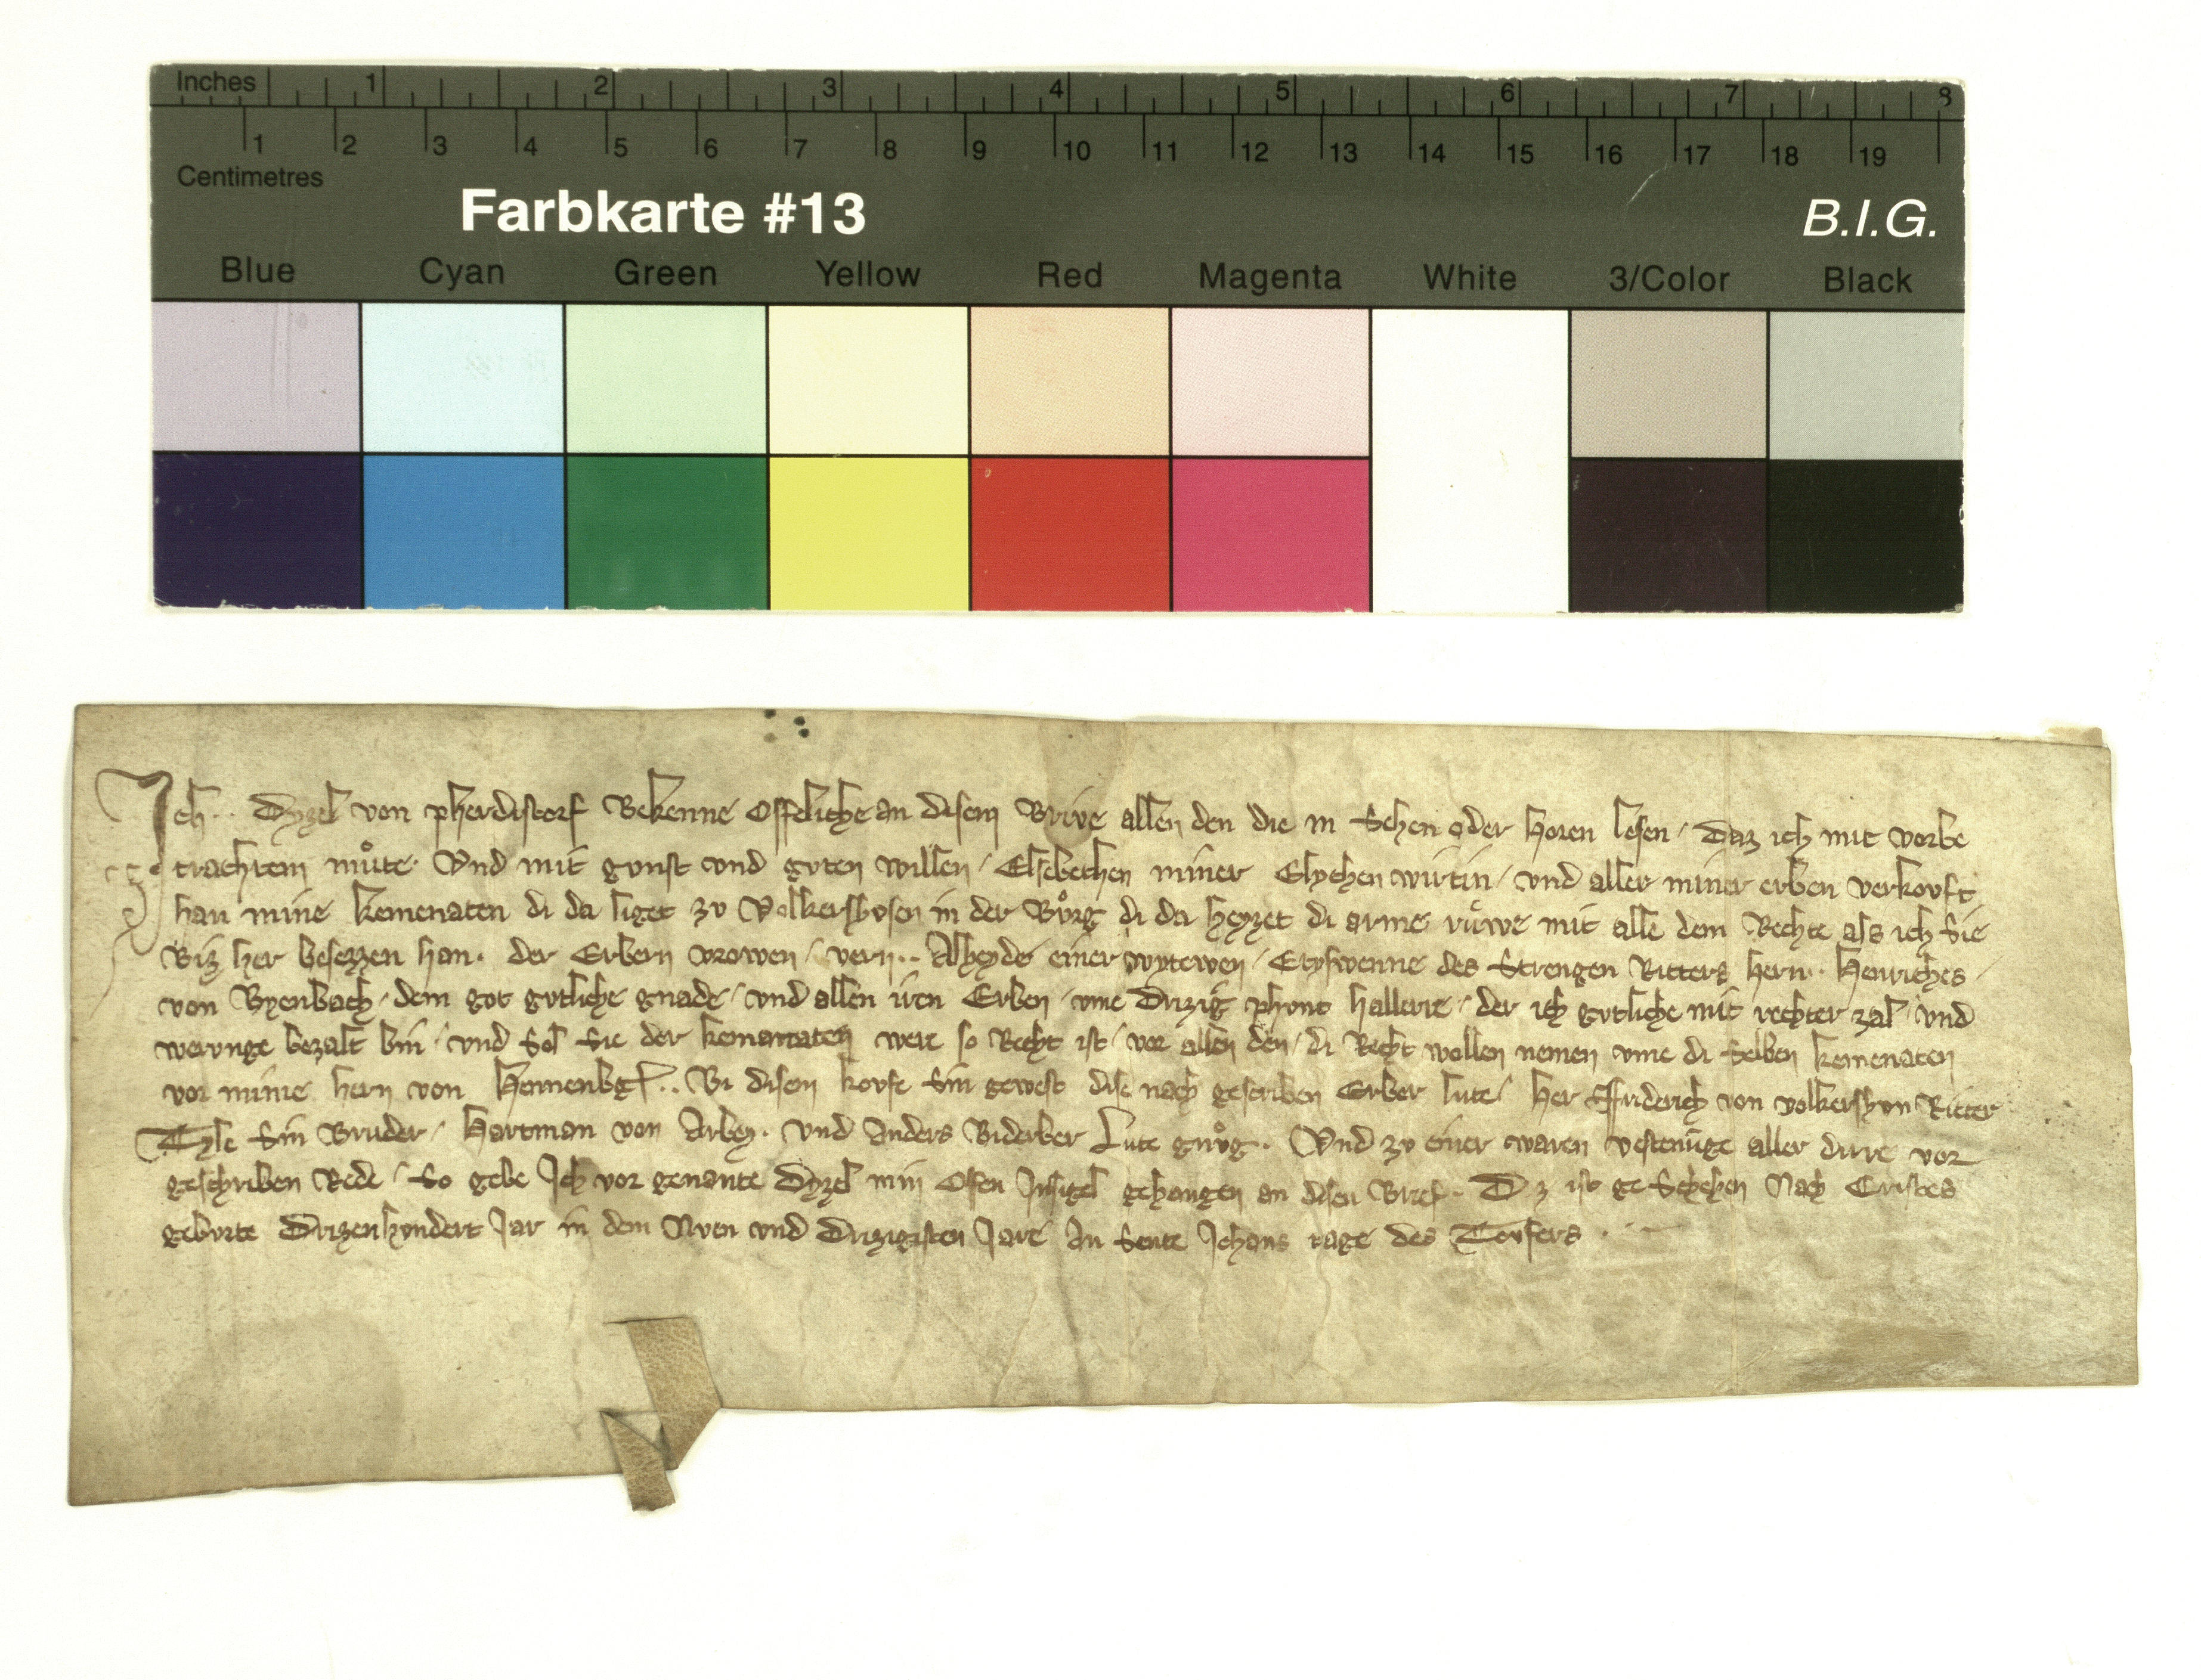 Inches 1 2 3 4 5 6 7 8
1 2 3 4 5 6 7 8 9 10 11 12 13 14 15 16 17 18 19
Centimetres
Farbkarte #13 B.I.G.
Blue Cyan Green Yellow Red Magenta White 3/Color Black
Ich·· Dyzel von pherdistorf Bekenne Offeliche an disem Brive allen den die in Sehen oder horen lesen / Daz ich mit vorbe
trachtem muͦte· Vnd mit gvnst vnd gvten willen / Elsebethen miner Elychen wirtin / vnd aller miner erben verkovft
han mine kemenaten di da liget zv Volkershvsen in der Bvͦrg di da heyzet di arme ruͦwe mit alle dem Rechte als ich Sie
Biz her besezzen han· der Erbern vrowen / vern·· Alheyde einer wytewen / Etyswenne des Strengen Ritters hern·· Henriches /
von Byenbach / dem got gvtliche gnade / vnd allen iren Erben / vme Drizig phvnt hallerre / der ich gvtliche mit rechter zal / vnd
werunge bezalt bin / vnd Sol Sie der kemanaten were so Recht ist / vor allen den / di Recht wollen nemen vme di Selben kemenaten
vor mime hern von Hennenbg·· Bi disem kovfe Sin gewest dise nach gescriben Erber lute / her Ffriderich von volkershvn Ritter
Tyle Sin Bruder / Hartman von Arbey· vnd Anders Biderber Lute gnvͦg· Vnd zv einer waren vestenuge aller dirre vor
geschriben Rede / So gebe Ich vor genante Dyzel min Ofen Insigel gehangen an disen Brief· Dz ist ge Schehen Nach Cristes
gebvrte Drizenhvndert Jar in dem Nven vnd Drizigisten Jare An Sente Johans tage des Tovfers ·